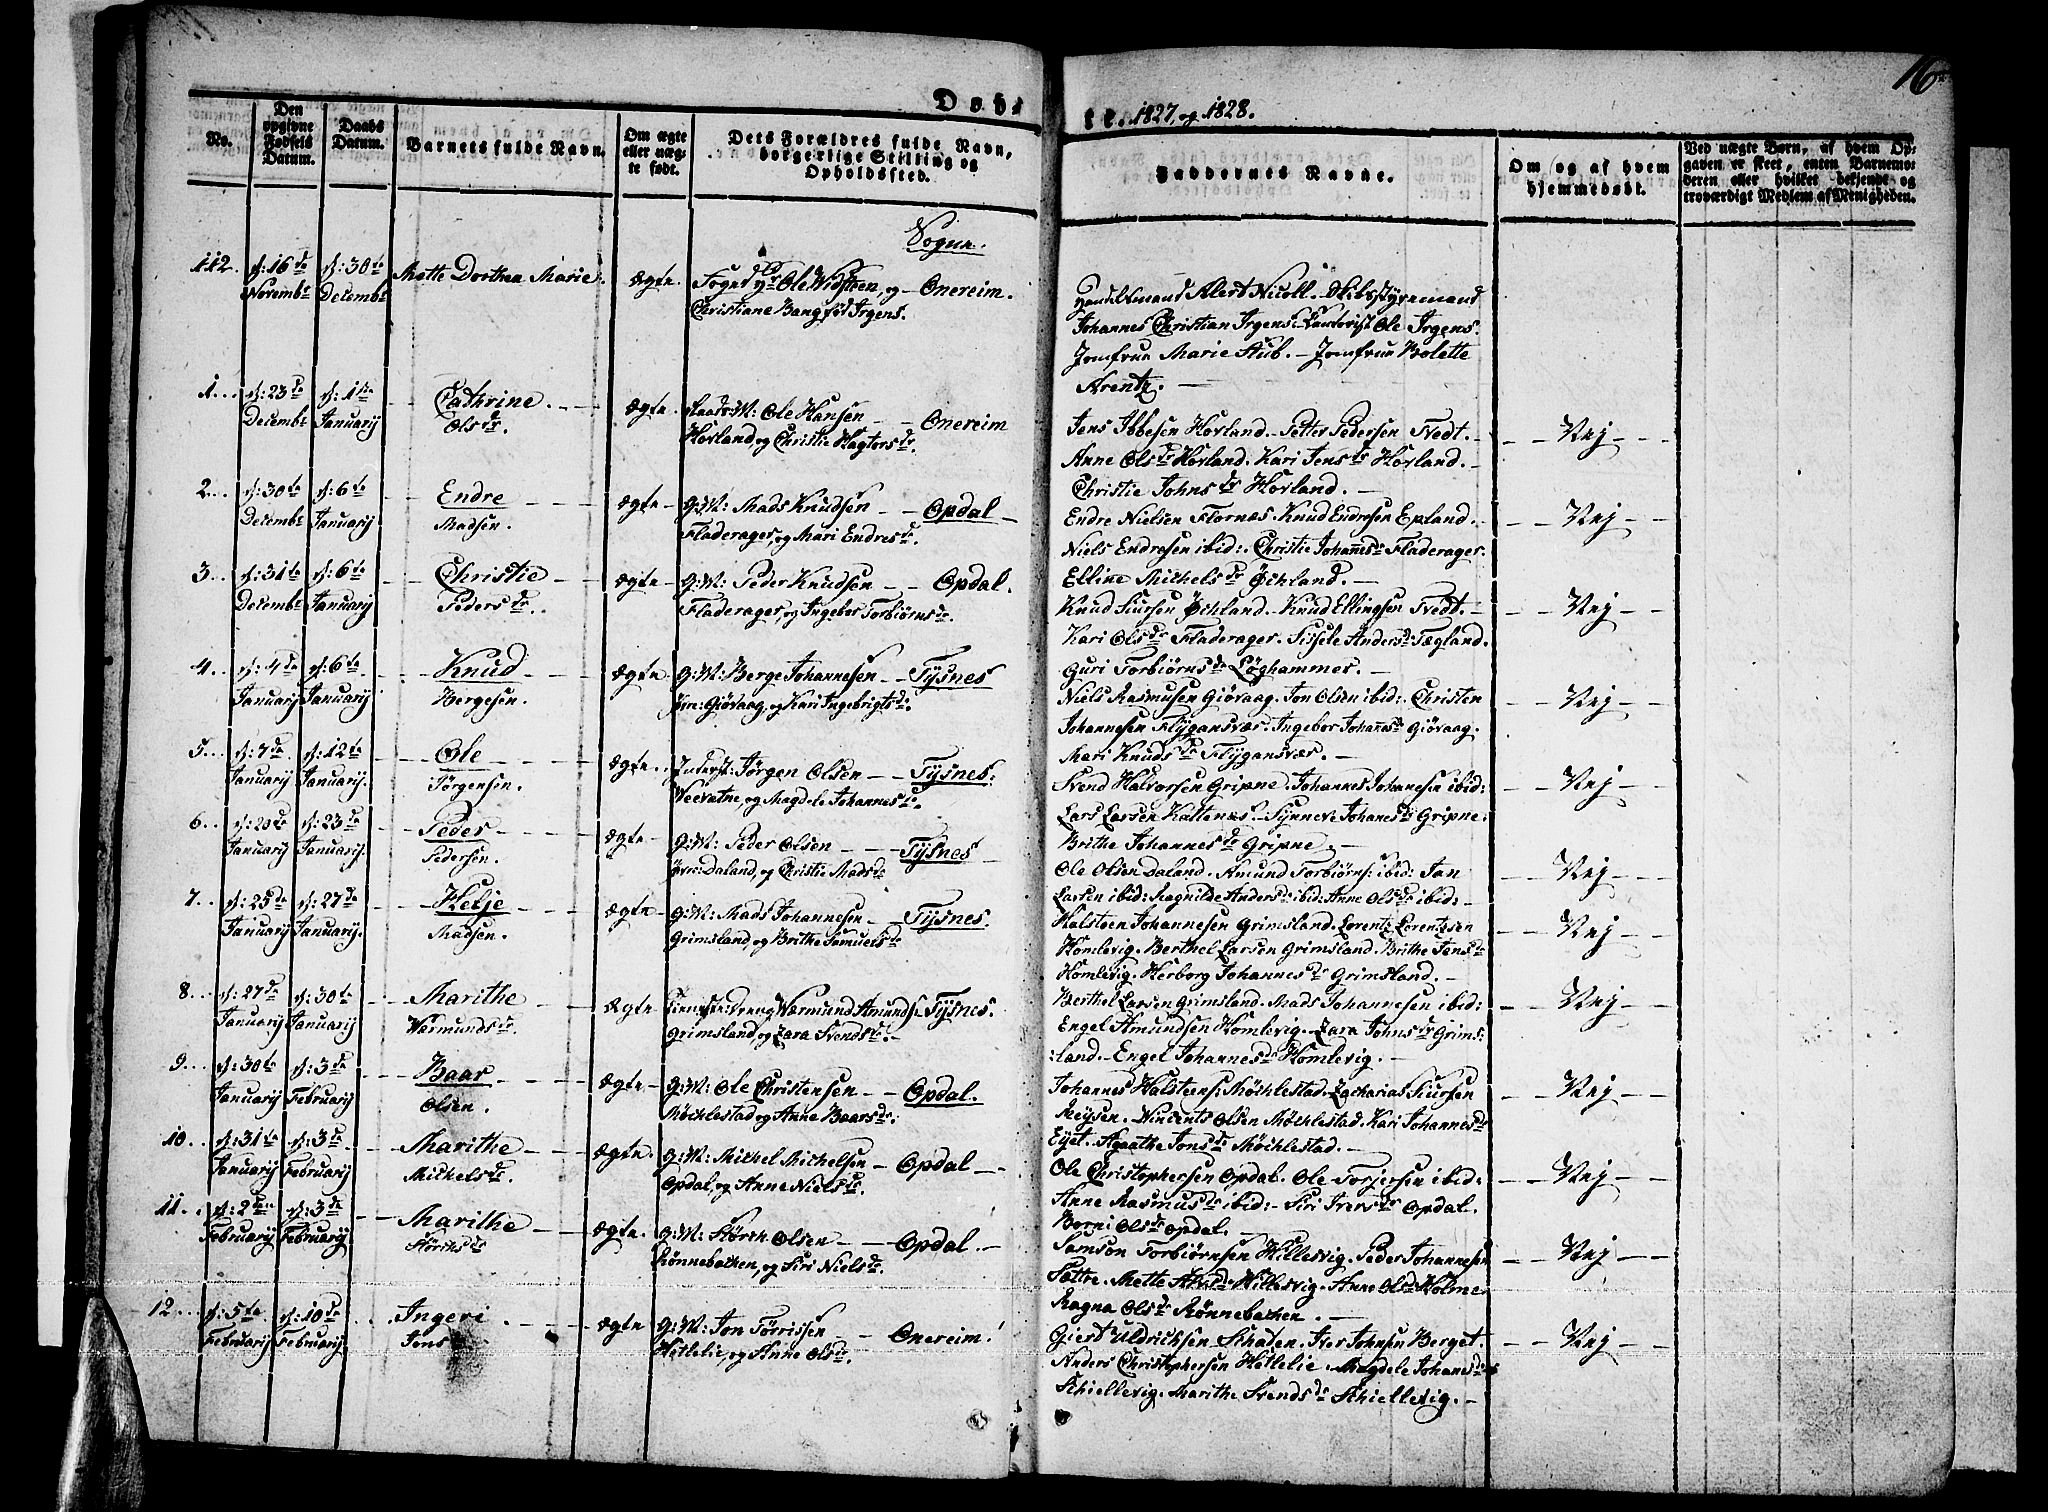 16
Døbte. 1827, og 1828.
No.
Den opgivne Fødsels Datum.
Daabs Datum.
Barnets fulde Navn.
Om ægte eller uægte født.
Dets Forældres fulde Navn, borgerlige Stilling og Opholdssted.
Faddernes Navne.
Om og af hvem hjemmedøbt.
Ved uægte Børn, af hvem Opgaven er skeet, enten Barnemoderen eller hvilket bekjendt og troværdigt Medlem af Menigheden.
Sogn.
112. d: 16de Novembr d: 30te Decembr Mette Dorthea Marie. Ægte. Ole Widsteen, og Christiane Bang fød Irgens. Onereim.
Alert Nicoll. Skibsstyremand
Johannes Christian Irgens. Ole Irgens.
Jomfrue Marie Aub. – Jomfrue Bolette
Arentz. –
1. d: 23de Decembr d: 1te Januarij Cathrine Olsdr. Ægte. Ole Hansen Hovland, og Christie Hagtorsdr. Onereim
Jens Ibbesen Hovland. Petter Pedersen Tvedt.
Anne Olsdr Hovland. Kari Jensdr Hovland. –
Christie Johnsdr Hovland. –
Nej
2. d: 30te Decembr d: 6te Januarij Endre Madsen. Ægte G:M: Mads Knudsen Fladerager, og Mari Endresdr. Opdal
Endre Nielsen Flornæs. Knud Endresen Epland.
Niels Endresen ibid:. Christie Johannesdr Fladerager.
Elline Michelsdr Øchland. –
Nej
3. d: 31te Decembr d: 6te Januarij Christie Pedersdr. Ægte G:M: Peder Knudsen Fladerager, og Ingebor Torbiørnsdr. Opdal.
Knud Siursen Øchland. Knud Ellingsen Tvedt. –
Kari Olsdr Fladerager. Sissele Andersdr Tægland.
Guri Torbiørnsdr Løghammer. –
Nej
4. d: 4de Januarij d: 6te Januarij Knud Bergesen. Ægte G:M: Berge Johannesen Giøvaag, og Kari Ingebrigtsdr. Tysnes
Niels Rasmusen Giøvaag. Jon Olsen ibid: Christen
Johannesen Flygansvær. Ingebor Johannesdr Giøvaag.
Mari Knudsdr Flygansvær. –
Nej
5. d: 7de Januarij d: 12te Januarij. Ole Jørgensen. Ægte. Inderst: Jørgen Olsen Veevatne, og Magdele Johannesdr. Tysnes:
Svend Halvorsen Gripne. Johannes Johannesen ibid:
Lars Larsen Kaltenæs. Synneve Johanesdr Gripne.
Brithe Johannesdr Gripne. –
Nej
6. d: 20de Januarij d: 23de Januarij. Peder Pedersen. Ægte G:M: Peder Olsen Øvre: Daland, og Christie Madsdr Tysnes
Ole Olsen Daland. Amund Torbiørns: ibid: Jan
Larsen ibid: Ragnilde Andersdr ibid: Anne Olsdr ibid: –
Nej
7. d: 25de Januarij d: 27de Januarij. Helje Madsen. Ægte G:M: Mads Johannesen Grimsland, og Brithe Samuelsdr Tysnes.
Halsteen Johannesen Grimsland. Lorentz Lorentzen
Homlevig. Berthel Larsen Grimsland. Brithe Jensdr
Homlevig. Herborg Johannesdr Grimsland. –
Nej
8. d: 27de Januarij d: 30te Januarij Marithe Wærmundsdr. Ægte Tieneste: Dreng Wærmund Amunds: Grimsland, og Zara Svendsdr. – Tysnes.
Berthel Larsen Grimsland. Mads Johannesen ibid:
Engel Amundsen Homlevig. Zara Johnsdr Grims:
:land. – Engel Johannesdr Homlevig. –
Nej
9. d: 30te Januarij d: 3de Februarij Baar Olsen. Ægte G:M: Ole Christensen Møchlestad og Anne Baarsdr: Opdal.
Johannes Halsteens: Møchlestad. Zacharias Siursen
Reysen. Vincents Olsen Møchlestad. Kari Johannesdr
Eyet. Agathe Jonsdr Møchlestad. –
Nej
10. d: 31te Januarij d: 3de Februarij Marithe Michelsdr. Ægte. G:M: Michel Michelsen Opdal, og Anne Nielsdr. Opdal
Ole Christophersen Opdal. Ole Torjersen ibid:
Anne Rasmusdr ibid: – Siri Iversdr Opdal.
Borni Olsdr Opdal. –
Nej
11. d: 2den Februarij d: 3de Februarij Marithe Størchsdr Ægte. G:M: Størch Olsen Rønnebachen, og Siri Nielsdr. Opdal. –
Samson Torbiørnsen Hillesvig. Peder Johannesen
Sættre. Mette Hillesvig. Anne Olsdr Holme
Ragna Olsdr Rønnebachen. –
Nej
12. d: 5te Februarij d: 10de Februarij. Ingeri Jons Ægte G:M: Jon Tørrissen Hetlelie, og Anne Olsdr. Onereim.
Giert Uldricksen Skaten. Iver Johnsen Berget.
Anders Christophersen Hetlelie. Magdele Johanesdr
Schiellevig. Marithe Svendsdr Schiellevig. –
Nej